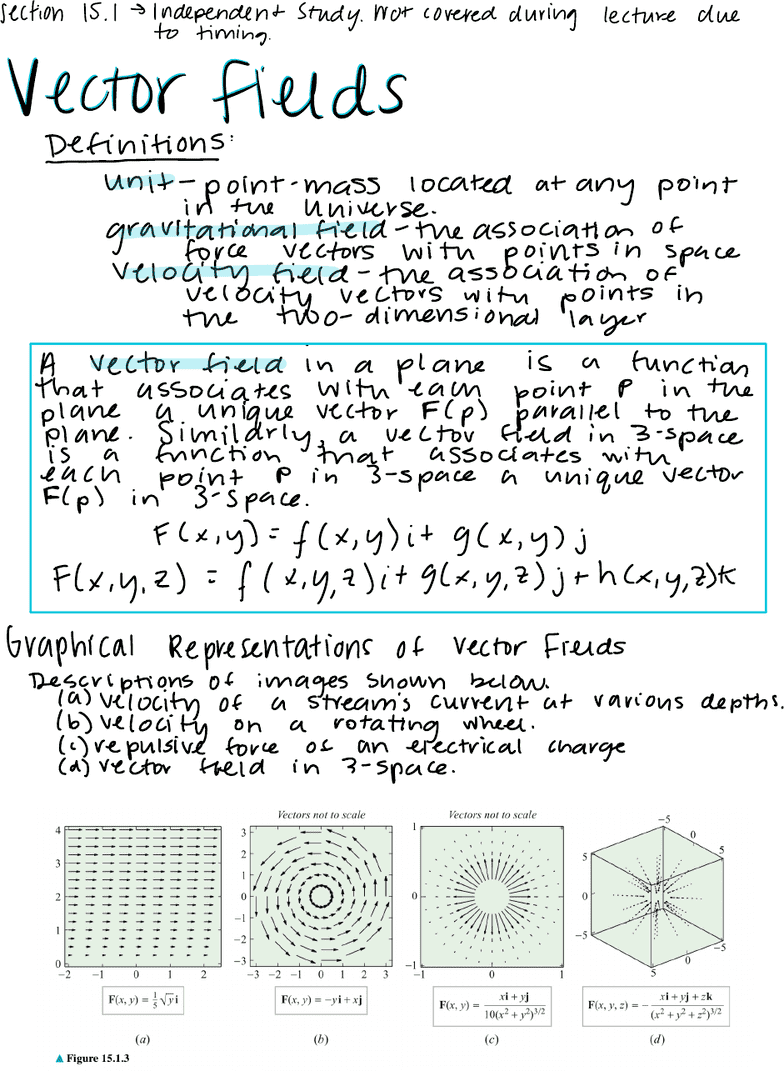 Section 15.1 → Independent Study. Not covered during lecture due
to timing.
Vector Fields
Definitions:
unit - point-mass located at any point
in the Universe.
gravitational field - the association of
force vectors with points in space
velocity field - the association of
velocity vectors with points in
the two-dimensional layer
A vector field in a plane is a function
that associates with each point P in the
plane a unique vector F(p) parallel to the
plane. Similarly, a vector field in 3-space
is a function that associates with
each point P in 3-space a unique vector
F(p) in 3-space.
F(x,y) = f(x,y)i + g(x,y)j
F(x,y,z) = f(x,y,z)i + g(x,y,z)j + h(x,y,z)k
Graphical Representations of Vector Fields
Descriptions of images shown below.
(a) velocity of a stream's current at various depths.
(b) velocity on a rotating wheel.
(c) repulsive force of an electrical charge
(d) vector field in 3-space.
Vectors not to scale
Vectors not to scale
4
3
2
1
0
−2 −1 0 1 2
3
2
1
0
−1
−2
−3
−3 −2 −1 0 1 2 3
1
0
−1
−1 0 1
−5
0
5
5
0
−5
−5
0
5
F(x, y) = 1/5 √y i
F(x, y) = −yi + xj
F(x, y) = (xi + yj) / (10(x² + y²)^3/2)
F(x, y, z) = − (xi + yj + zk) / ((x² + y² + z²)^3/2)
(a)
(b)
(c)
(d)
▲ Figure 15.1.3